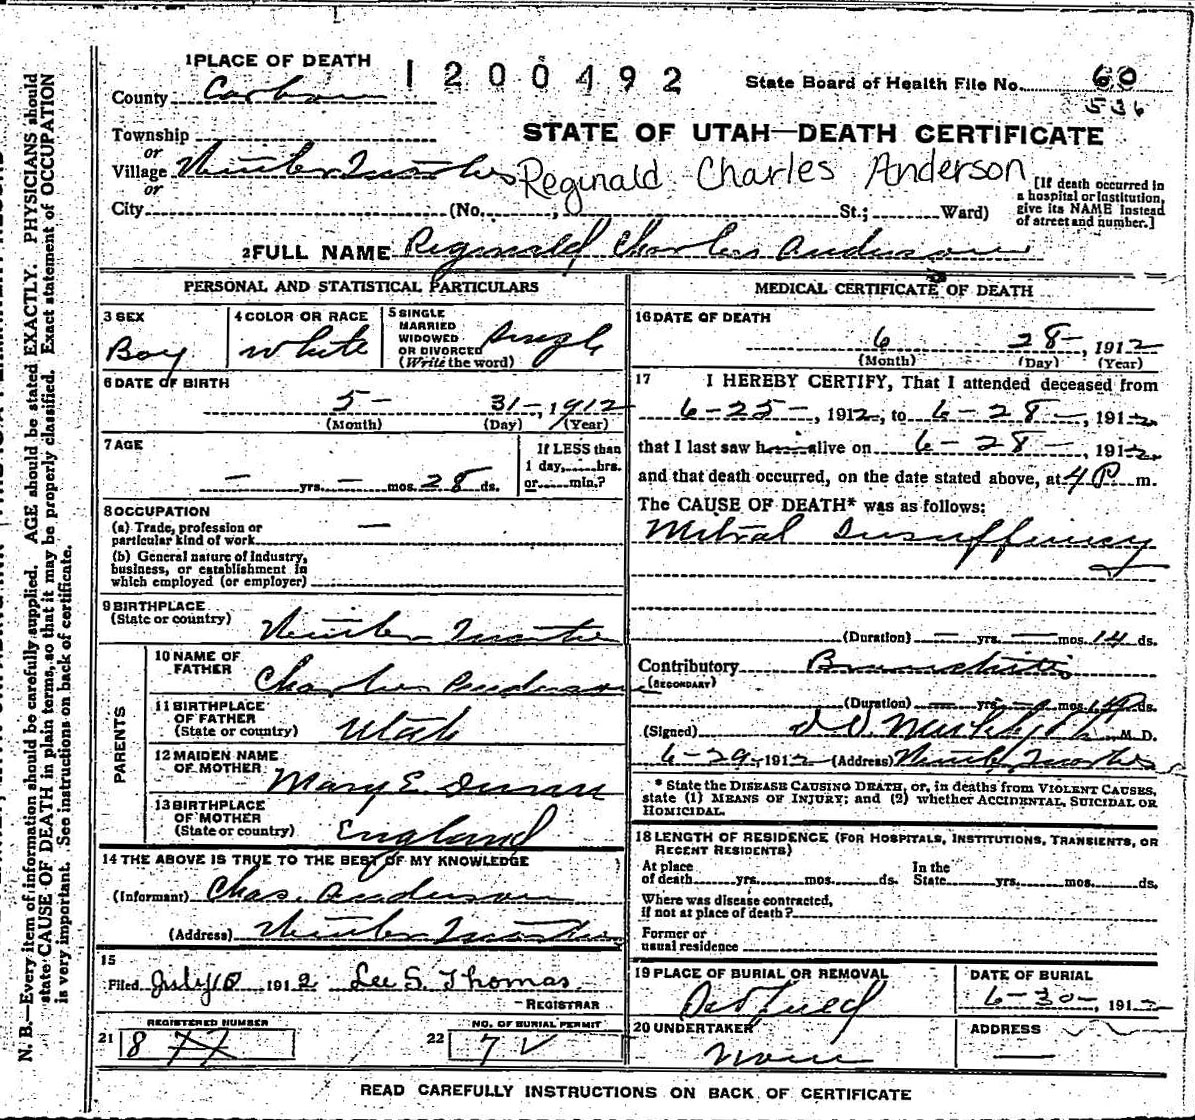 1 PLACE OF DEATH
1200492
State Board of Health File No. 60
536
County Carbon
STATE OF UTAH—DEATH CERTIFICATE
Township
or
Village Winter Quarters
Reginald Charles Anderson
or
[If death occurred in a hospital or institution, give its NAME instead of street and number.]
City (No. , St.; Ward)
2 FULL NAME Reginald Charles Anderson
PERSONAL AND STATISTICAL PARTICULARS
3 SEX
Boy
4 COLOR OR RACE
White
5 SINGLE
MARRIED
WIDOWED
OR DIVORCED
(Write the word)
Single
6 DATE OF BIRTH
5- 31-, 1912
(Month) (Day) (Year)
7 AGE
— yrs. — mos. 28 ds.
If LESS than
1 day, hrs.
or min.?
8 OCCUPATION
(a) Trade, profession or
particular kind of work —
(b) General nature of industry,
business, or establishment in
which employed (or employer)
9 BIRTHPLACE
(State or country)
Winter Quarters
PARENTS
10 NAME OF
FATHER
Charles Anderson
11 BIRTHPLACE
OF FATHER
(State or country)
Utah
12 MAIDEN NAME
OF MOTHER
Mary E.
13 BIRTHPLACE
OF MOTHER
(State or country)
England
14 THE ABOVE IS TRUE TO THE BEST OF MY KNOWLEDGE
(Informant) Chas. Anderson
(Address) Winter Quarters
15
Filed July 10 1912 Lee S. Thomas.
REGISTRAR
REGISTERED NUMBER
21 8 77
NO. OF BURIAL PERMIT
22 7
MEDICAL CERTIFICATE OF DEATH
16 DATE OF DEATH
6 28-, 1912
(Month) (Day) (Year)
17 I HEREBY CERTIFY, That I attended deceased from
6-25-, 1912, to 6-28-, 1912
that I last saw him alive on 6-28-, 1912
and that death occurred, on the date stated above, at 4 P m.
The CAUSE OF DEATH* was as follows:
Mitral Insufficiency
(Duration) — yrs. — mos. 14 ds.
Contributory Bronchitis
(SECONDARY)
(Duration) — yrs. — mos. ds.
(Signed) M. D.
6-29-, 1912 (Address) Winter Quarters
* State the DISEASE CAUSING DEATH, or, in deaths from VIOLENT CAUSES,
state (1) MEANS OF INJURY; and (2) whether ACCIDENTAL, SUICIDAL OR
HOMICIDAL.
18 LENGTH OF RESIDENCE (FOR HOSPITALS, INSTITUTIONS, TRANSIENTS, OR
RECENT RESIDENTS)
At place
of death yrs. mos. ds.
In the
State yrs. mos. ds.
Where was disease contracted,
if not at place of death?
Former or
usual residence
19 PLACE OF BURIAL OR REMOVAL
DATE OF BURIAL
6-30-, 1912
20 UNDERTAKER
None
ADDRESS
—
READ CAREFULLY INSTRUCTIONS ON BACK OF CERTIFICATE
N. B.—Every item of information should be carefully supplied. AGE should be stated EXACTLY. PHYSICIANS should
state CAUSE OF DEATH in plain terms, so that it may be properly classified. Exact statement of OCCUPATION
is very important. See instructions on back of certificate.